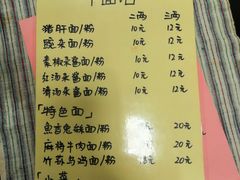 二两 三两
猪肝面/粉 10元 12元
豌杂面/粉 10元 12元
素椒杂酱面/粉 10元 12元
红汤杂酱面/粉 10元 12元
清汤杂酱面/粉 10元 12元
「特色面」
面/粉 20元
麻辣牛肉面/粉 20元
竹荪乌鸡面/粉 20元